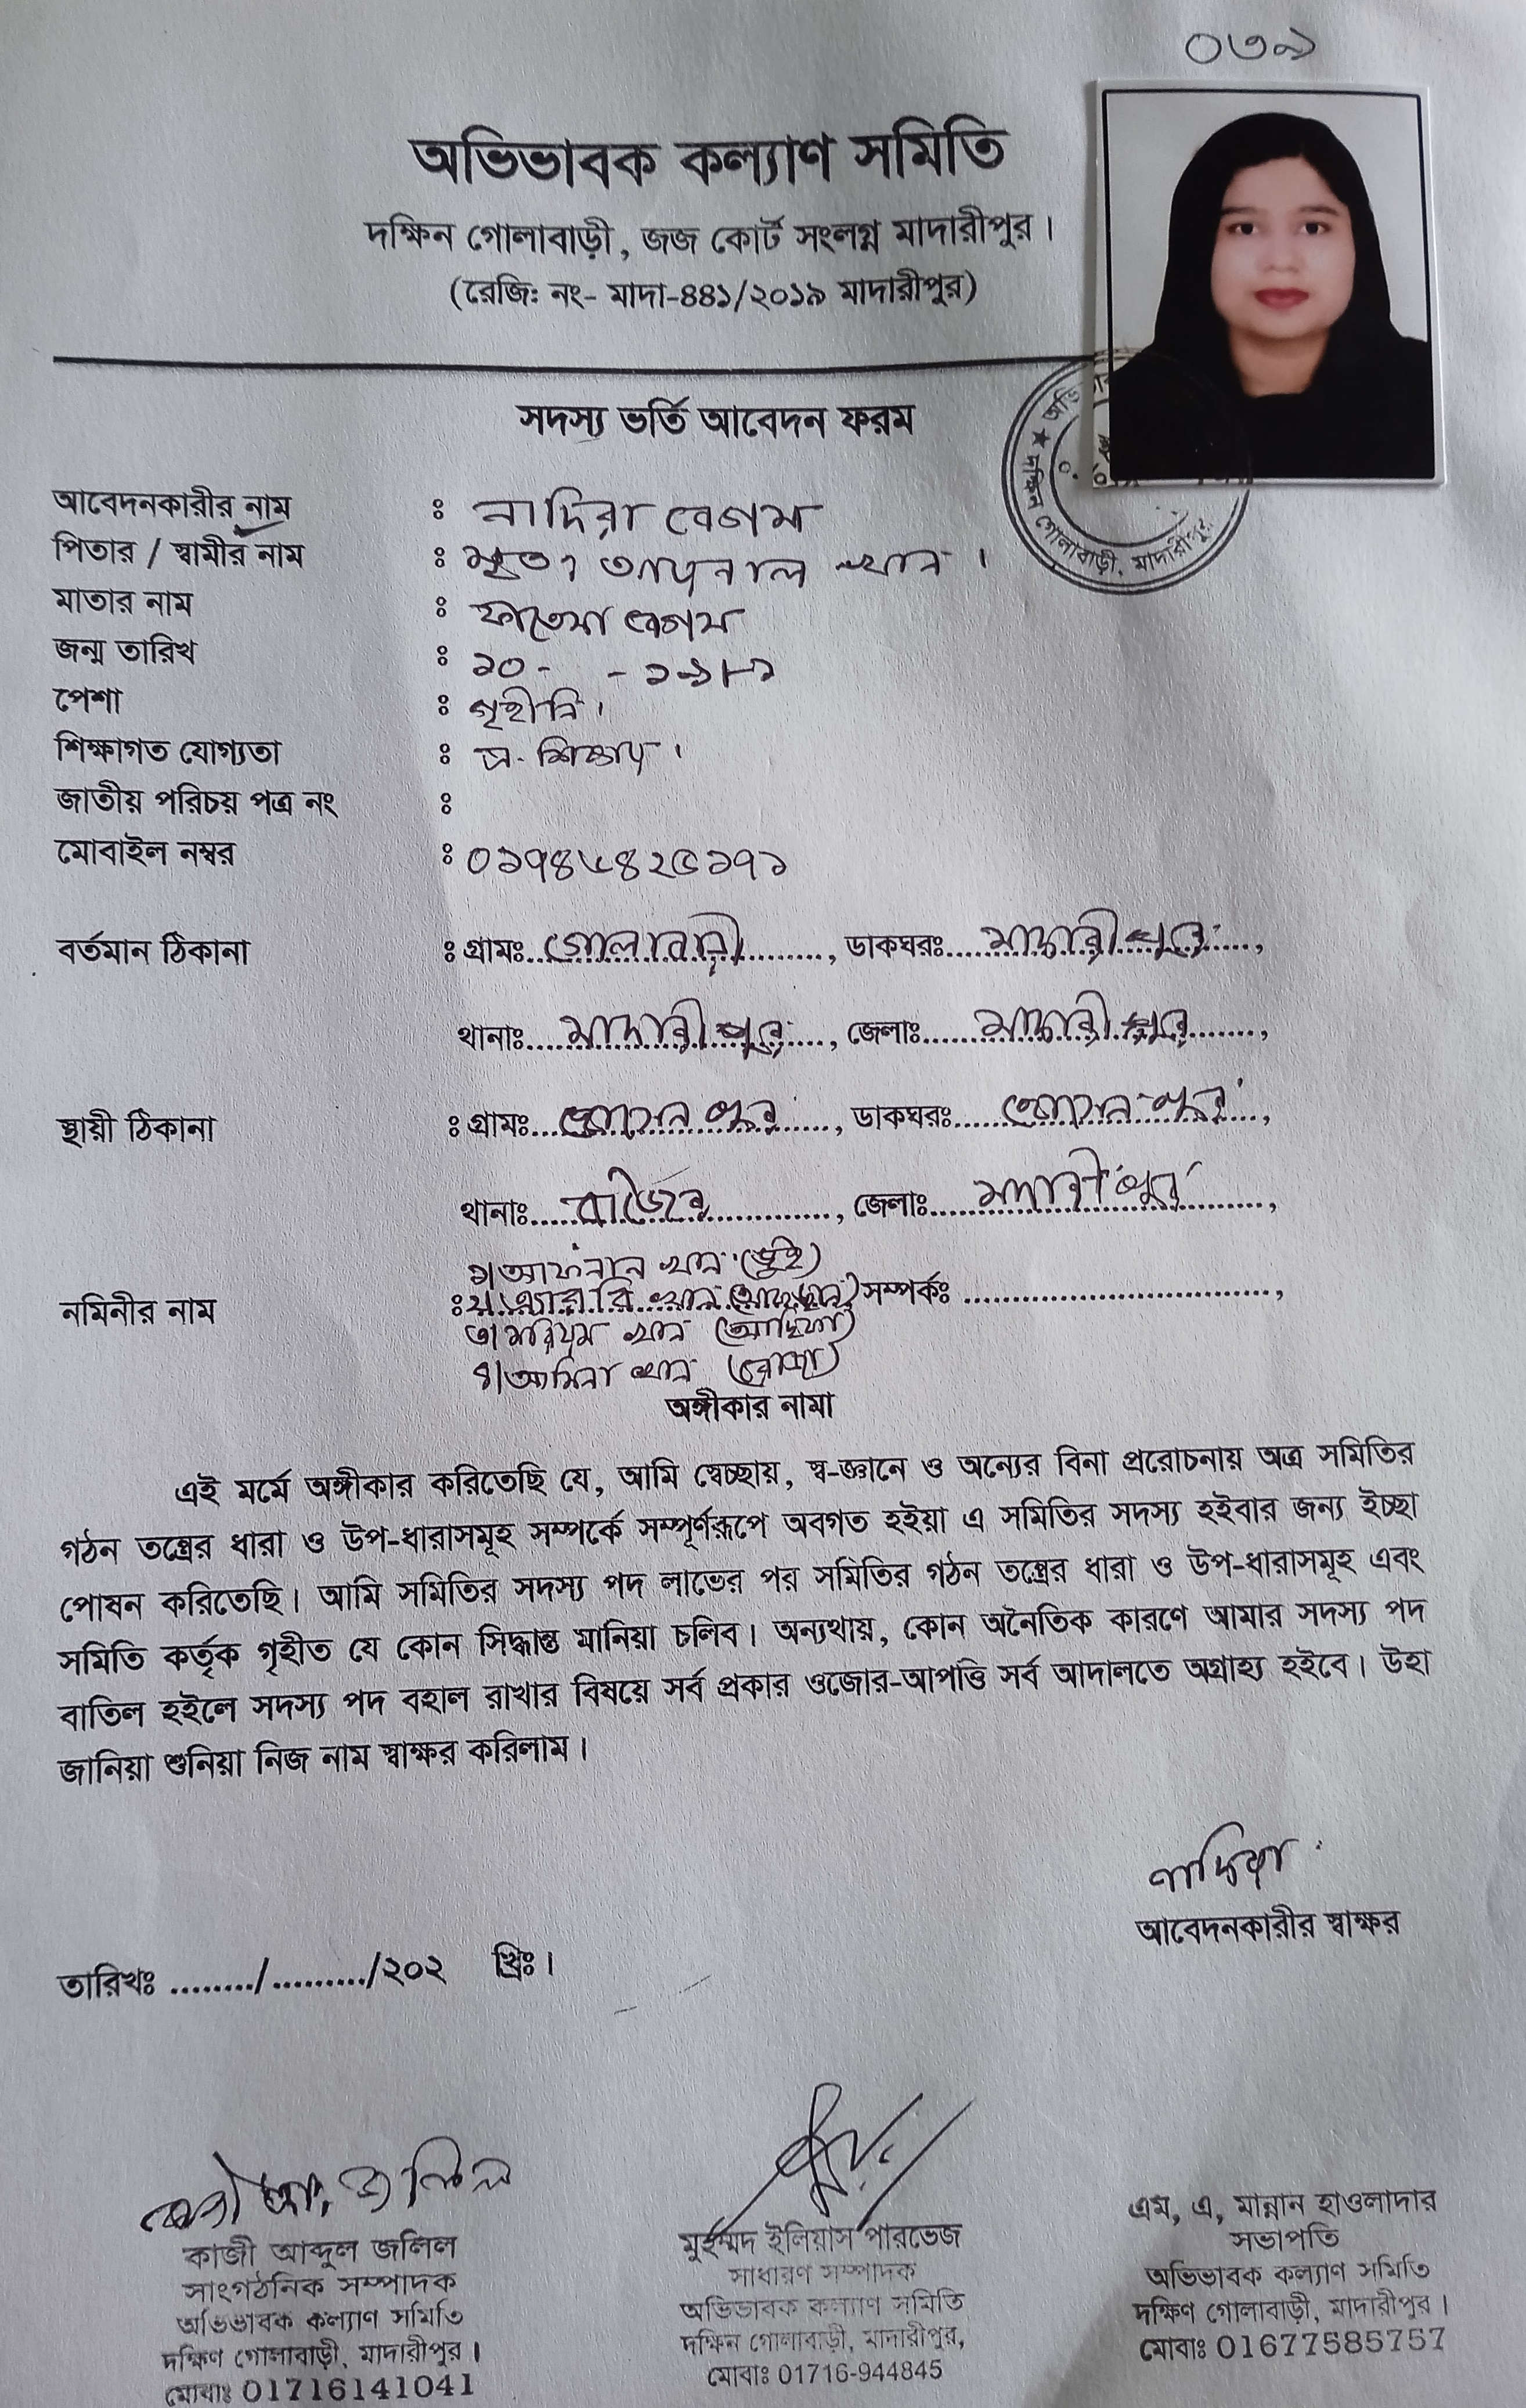 ০৩৯
অভিভাবক কল্যাণ সমিতি
দক্ষিন গোলাবাড়ী, জজ কোর্ট সংলগ্ন মাদারীপুর।
(রেজি: নং- মাদা-৪৪১/২০১৯ মাদারীপুর)
সদস্য ভর্তি আবেদন ফরম
দক্ষিন গোলাবাড়ী, মাদারীপুর
আবেদনকারীর নাম : নাদিরা বেগম
পিতার / স্বামীর নাম : মৃতঃ খান।
মাতার নাম : ফাতেমা বেগম
জন্ম তারিখ : ১০- - ১৯৮১
পেশা : গৃহীনি।
শিক্ষাগত যোগ্যতা :
জাতীয় পরিচয় পত্র নং :
মোবাইল নম্বর : ০১৭৪৮৪২৫১৭১
বর্তমান ঠিকানা : গ্রামঃ গোলাবাড়ী, ডাকঘরঃ মাদারীপুর,
থানাঃ মাদারীপুর, জেলাঃ মাদারীপুর,
স্থায়ী ঠিকানা : গ্রামঃ, ডাকঘরঃ,
থানাঃ রাজৈর, জেলাঃ মাদারীপুর,
১। আফনান খান
নমিনীর নাম : ২। খান সম্পর্কঃ,
৩। মরিয়ম খান
৪। আমিনা খান
অঙ্গীকার নামা
এই মর্মে অঙ্গীকার করিতেছি যে, আমি স্বেচ্ছায়, স্ব-জ্ঞানে ও অন্যের বিনা প্ররোচনায় অত্র সমিতির
গঠন তন্ত্রের ধারা ও উপ-ধারাসমূহ সম্পর্কে সম্পূর্ণরূপে অবগত হইয়া এ সমিতির সদস্য হইবার জন্য ইচ্ছা
পোষন করিতেছি। আমি সমিতির সদস্য পদ লাভের পর সমিতির গঠন তন্ত্রের ধারা ও উপ-ধারাসমূহ এবং
সমিতি কর্তৃক গৃহীত যে কোন সিদ্ধান্ত মানিয়া চলিব। অন্যথায়, কোন অনৈতিক কারণে আমার সদস্য পদ
বাতিল হইলে সদস্য পদ বহাল রাখার বিষয়ে সর্ব প্রকার ওজোর-আপত্তি সর্ব আদালতে অগ্রাহ্য হইবে। উহা
জানিয়া শুনিয়া নিজ নাম স্বাক্ষর করিলাম।
নাদিরা
আবেদনকারীর স্বাক্ষর
তারিখঃ ......../........./২০২ খ্রিঃ।
কাজী আব্দুল জলিল
সাংগঠনিক সম্পাদক
অভিভাবক কল্যাণ সমিতি
দক্ষিণ গোলাবাড়ী, মাদারীপুর।
মোবাঃ 01716141041
মুহম্মদ ইলিয়াস পারভেজ
সাধারণ সম্পাদক
অভিভাবক কল্যাণ সমিতি
দক্ষিন গোলাবাড়ী, মাদারীপুর,
মোবাঃ 01716-944845
এম, এ, মান্নান হাওলাদার
সভাপতি
অভিভাবক কল্যাণ সমিতি
দক্ষিণ গোলাবাড়ী, মাদারীপুর।
মোবাঃ 01677585757